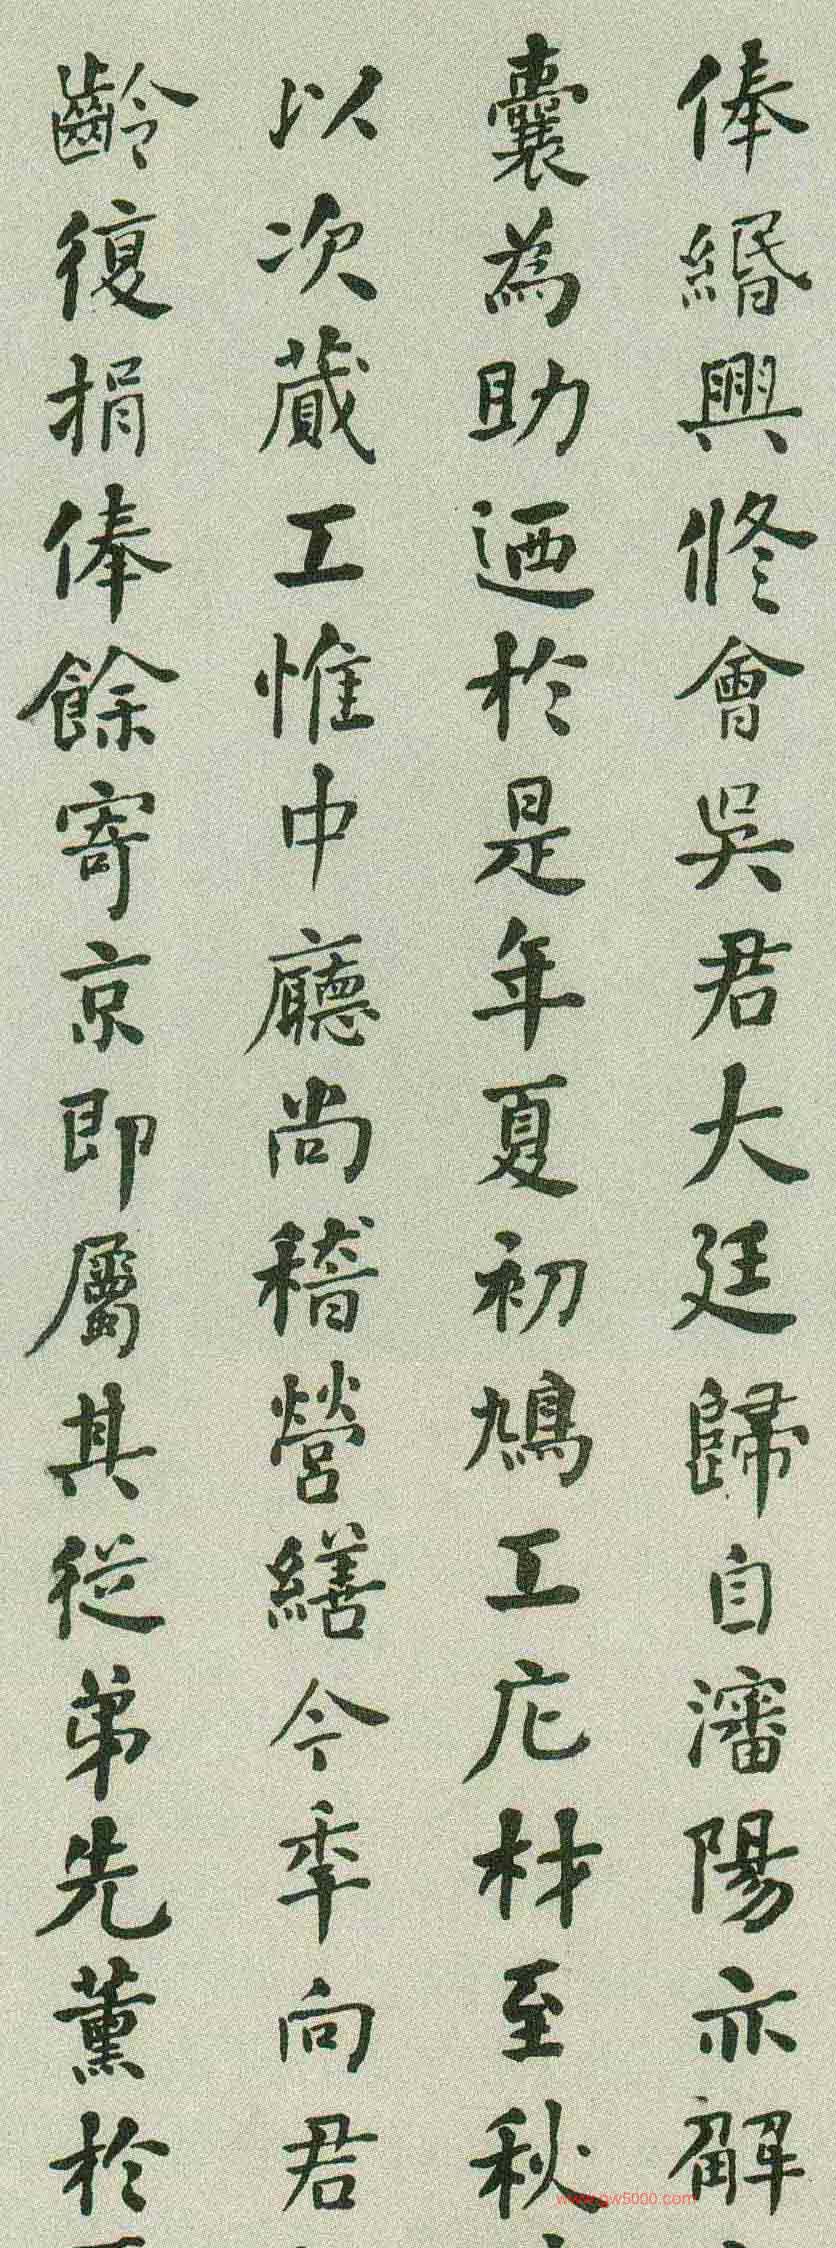 俸緡興修會吳君大廷歸自瀋陽亦解
囊為助迺於是年夏初鳩工庀材至秋
以次蕆工惟中廳尚稽營繕今季向君
齡復捐俸餘寄京即屬其從弟先薰於
www.gw5000.com